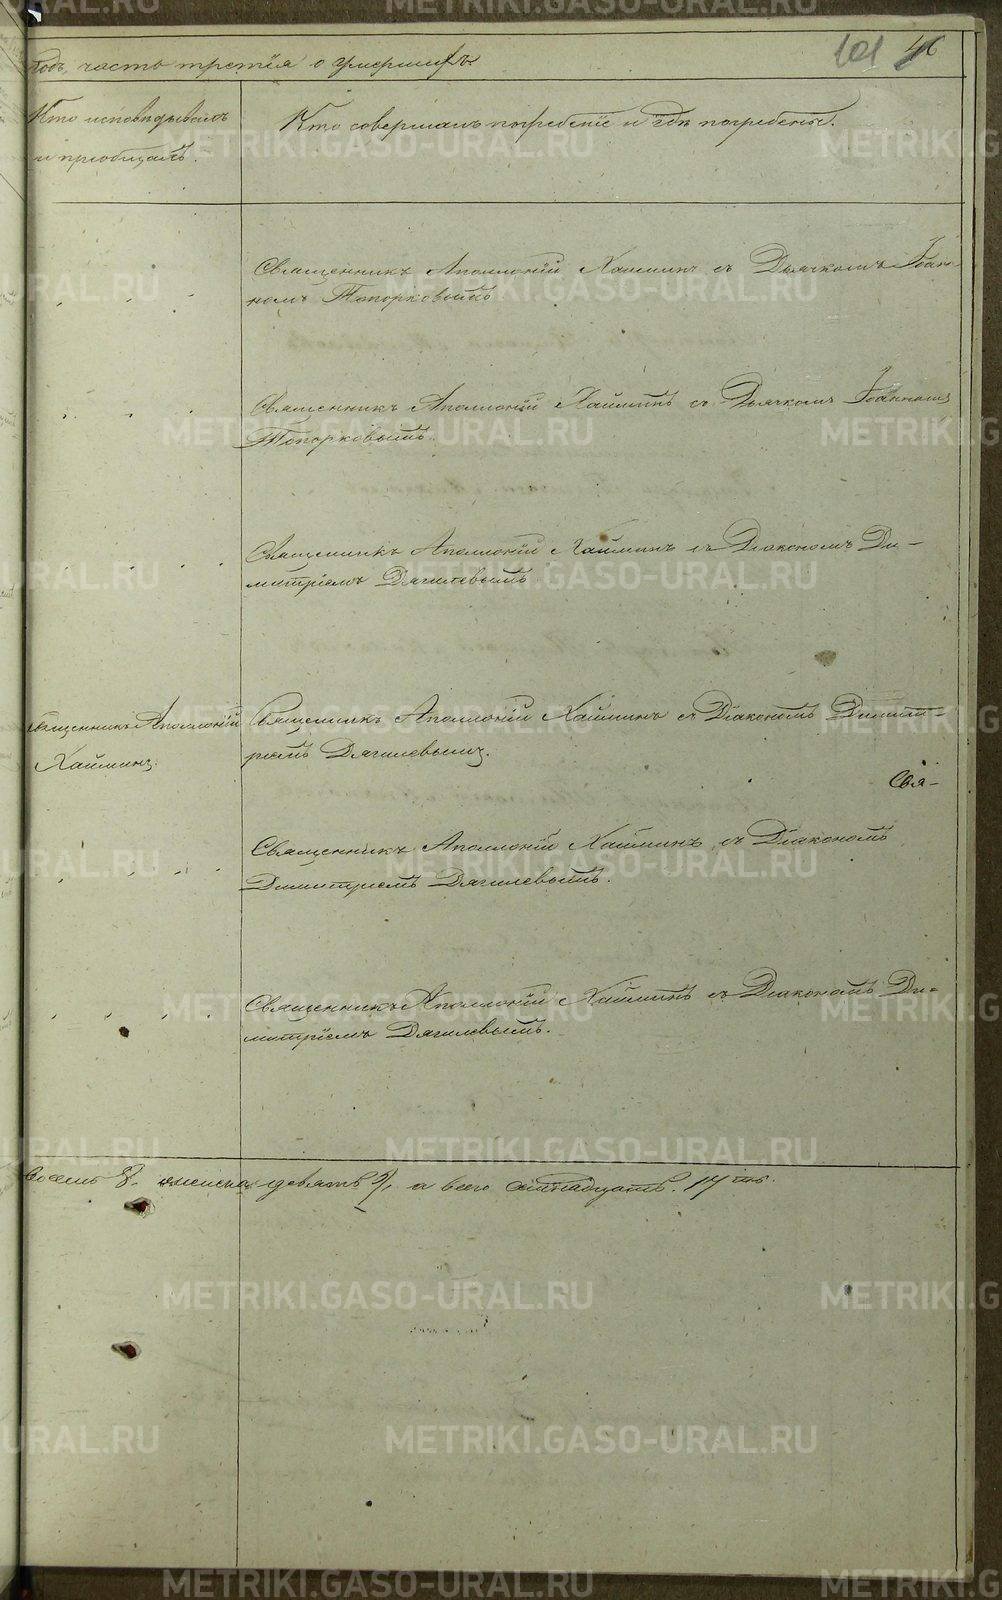 101 46
годъ, часть третія о умершихъ
Кто исповѣдывалъ
и пріобщалъ.
Кто совершалъ погребеніе и гдѣ погребены.
Священникъ Аполлоній Хайминъ съ Дьячкомъ Іоан-
номъ Топорковымъ
Священникъ Аполлоній Хайминъ съ Дьячкомъ Іоанномъ
Топорковымъ.
Священникъ Аполлоній Хайминъ съ Діакономъ Ди-
митріемъ Дягилевымъ
Священникъ Аполлоній
Хайминъ.
Священникъ Аполлоній Хайминъ съ Діакономъ Димит-
ріемъ Дягилевымъ.
Свя-
Священникъ Аполлоній Хайминъ съ Діакономъ
Димитріемъ Дягилевымъ.
Священникъ Аполлоній Хайминъ съ Діакономъ Ди-
митріемъ Дягилевымъ.
восемь 8. женска девять 9, а всего семнадцать. 17ть.
METRIKI.GASO-URAL.RU